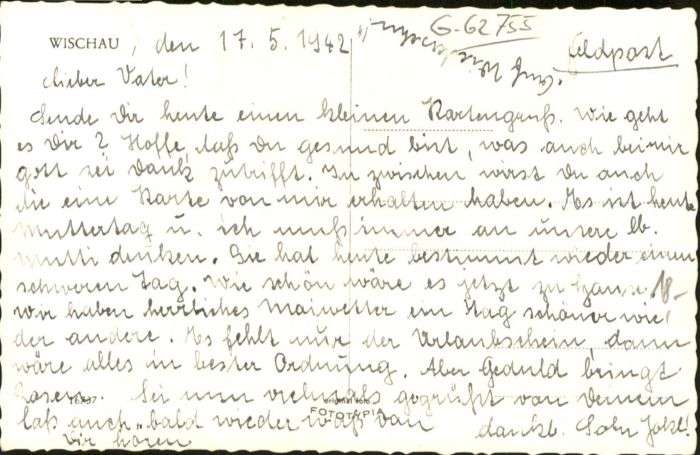 G-62755
WISCHAU, den 17. 5. 1942
Feldpost
Auf Wiedersehen!
Lieber Vater!
Sende Dir heute einen kleinen Kartengruß. Wie geht
es Dir? Hoffe, daß Du gesund bist, was auch bei mir
gott sei dank zutrifft. In zwischen wirst Du auch
die eine Karte von mir erhalten haben. Es ist heute
Muttertag u. ich muß immer an unsere lb.
Mutti denken. Sie hat heute bestimmt wieder einen
schweren Tag. Wie schön wäre es jetzt zu Hause.
Wir haben herrliches Maiwetter ein Tag schöner wie
der andere. Es fehlt nur der Urlaubschein, dann
wäre alles in bester Ordnung. Aber Geduld bringt
Rosen. Sei nun vielmals gegrüßt von Deinem
FOTOTYPIA
laß auch bald wieder was von dankb. Sohn
Dir hören